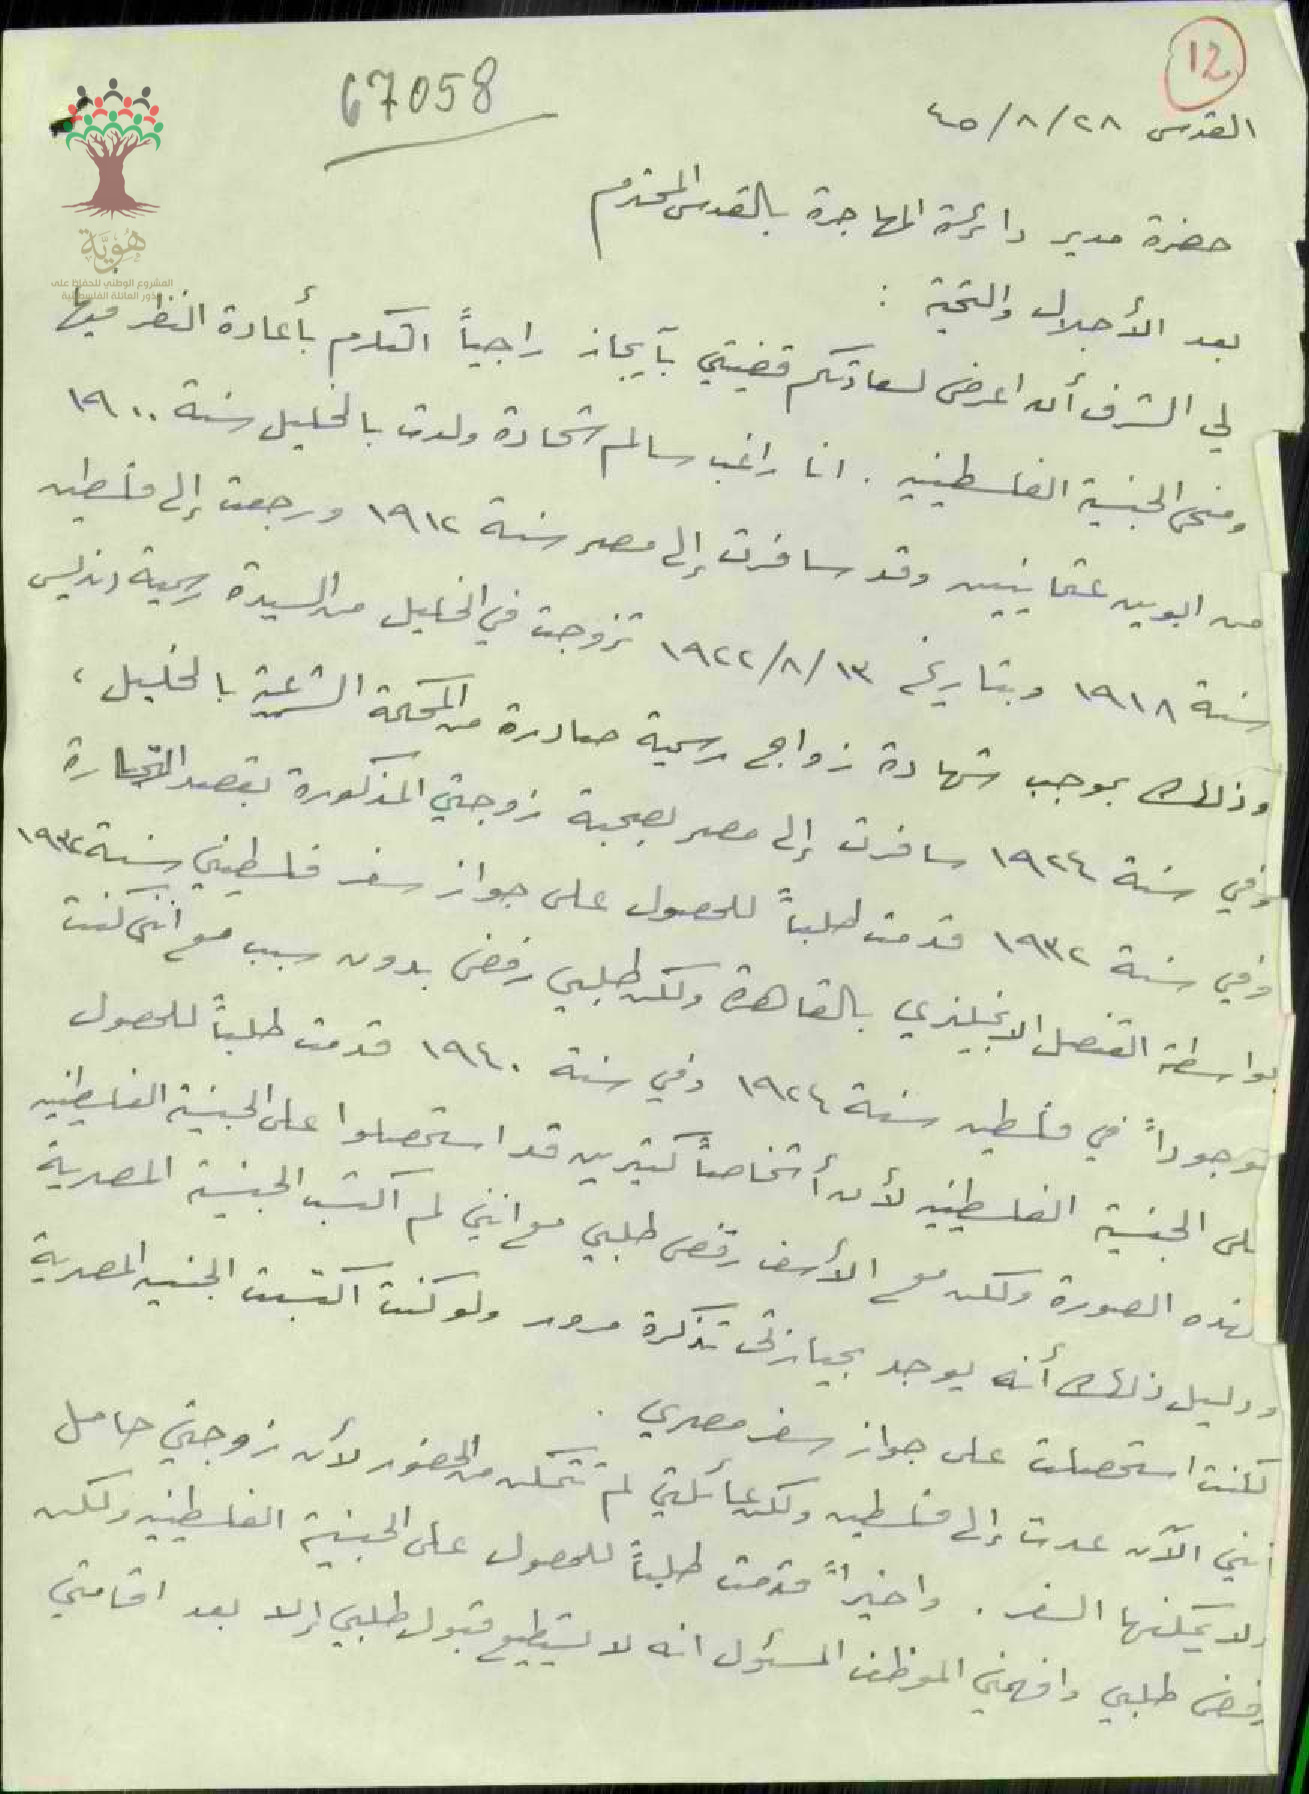 12
67058
القدس ٢٨/٨/٤٥
هُوِيَّة
المشروع الوطني للحفاظ على
جذور العائلة الفلسطينية
حضرة مدير دائرة المهاجرة بالقدس المحترم
بعد الأجلال والتحية :
لي الشرف أن اعرض لسعادتكم قضيتي بآيجاز راجياً التكرم بأعادة النظر فيها
ومنحى الجنسية الفلسطينيه . انا راغب سالم شحادة ولدت بالخليل سنة ١٩٠٠
من ابوين عثمانيين وقد سافرت إلى مصر سنة ١٩١٢ ورجعت إلى فلسطين
سنة ١٩١٨ وبتاريخ ١٣/٨/١٩٢٢ تزوجت في الخليل من السيدة رسمية
وذلك بموجب شهادة زواج رسمية صادرة من المحكمة الشرعية بالخليل ،
وفي سنة ١٩٢٤ سافرت إلى مصر بصحبة زوجتي المذكورة بقصد التجارة
وفي سنة ١٩٣٢ قدمت طلباً للحصول على جواز سفر فلسطيني سنة ١٩٣٢
بواسطة القنصل الانجليزي بالقاهرة ولكن طلبي رفض بدون سبب مع انني كنت
موجوداً في فلسطين سنة ١٩٢٤ وفي سنة ١٩٤٠ قدمت طلباً للحصول
على الجنسية الفلسطينيه لأن أشخاصاً كثيرين قد استحصلوا على الجنسية الفلسطينيه
بهذه الصورة ولكن مع الأسف رفض طلبي مع انني لم اكتسب الجنسية المصرية
ودليل ذلك أنه يوجد بحيازتى تذكرة مرور ولو كنت اكتسبت الجنسيه المصرية
لكنت استحصلت على جواز سفر مصري .
انني الآن عدت إلى فلسطين ولكن عائلتي لم تتمكن من الحضور لأن زوجتي حامل
ولا يمكنها السفر . واخيراً قدمت طلباً للحصول على الجنسية الفلسطينيه ولكن
رفض طلبي وافهمني الموظف المسئول انه لا يستطيع قبول طلبي إلا بعد اقامتي